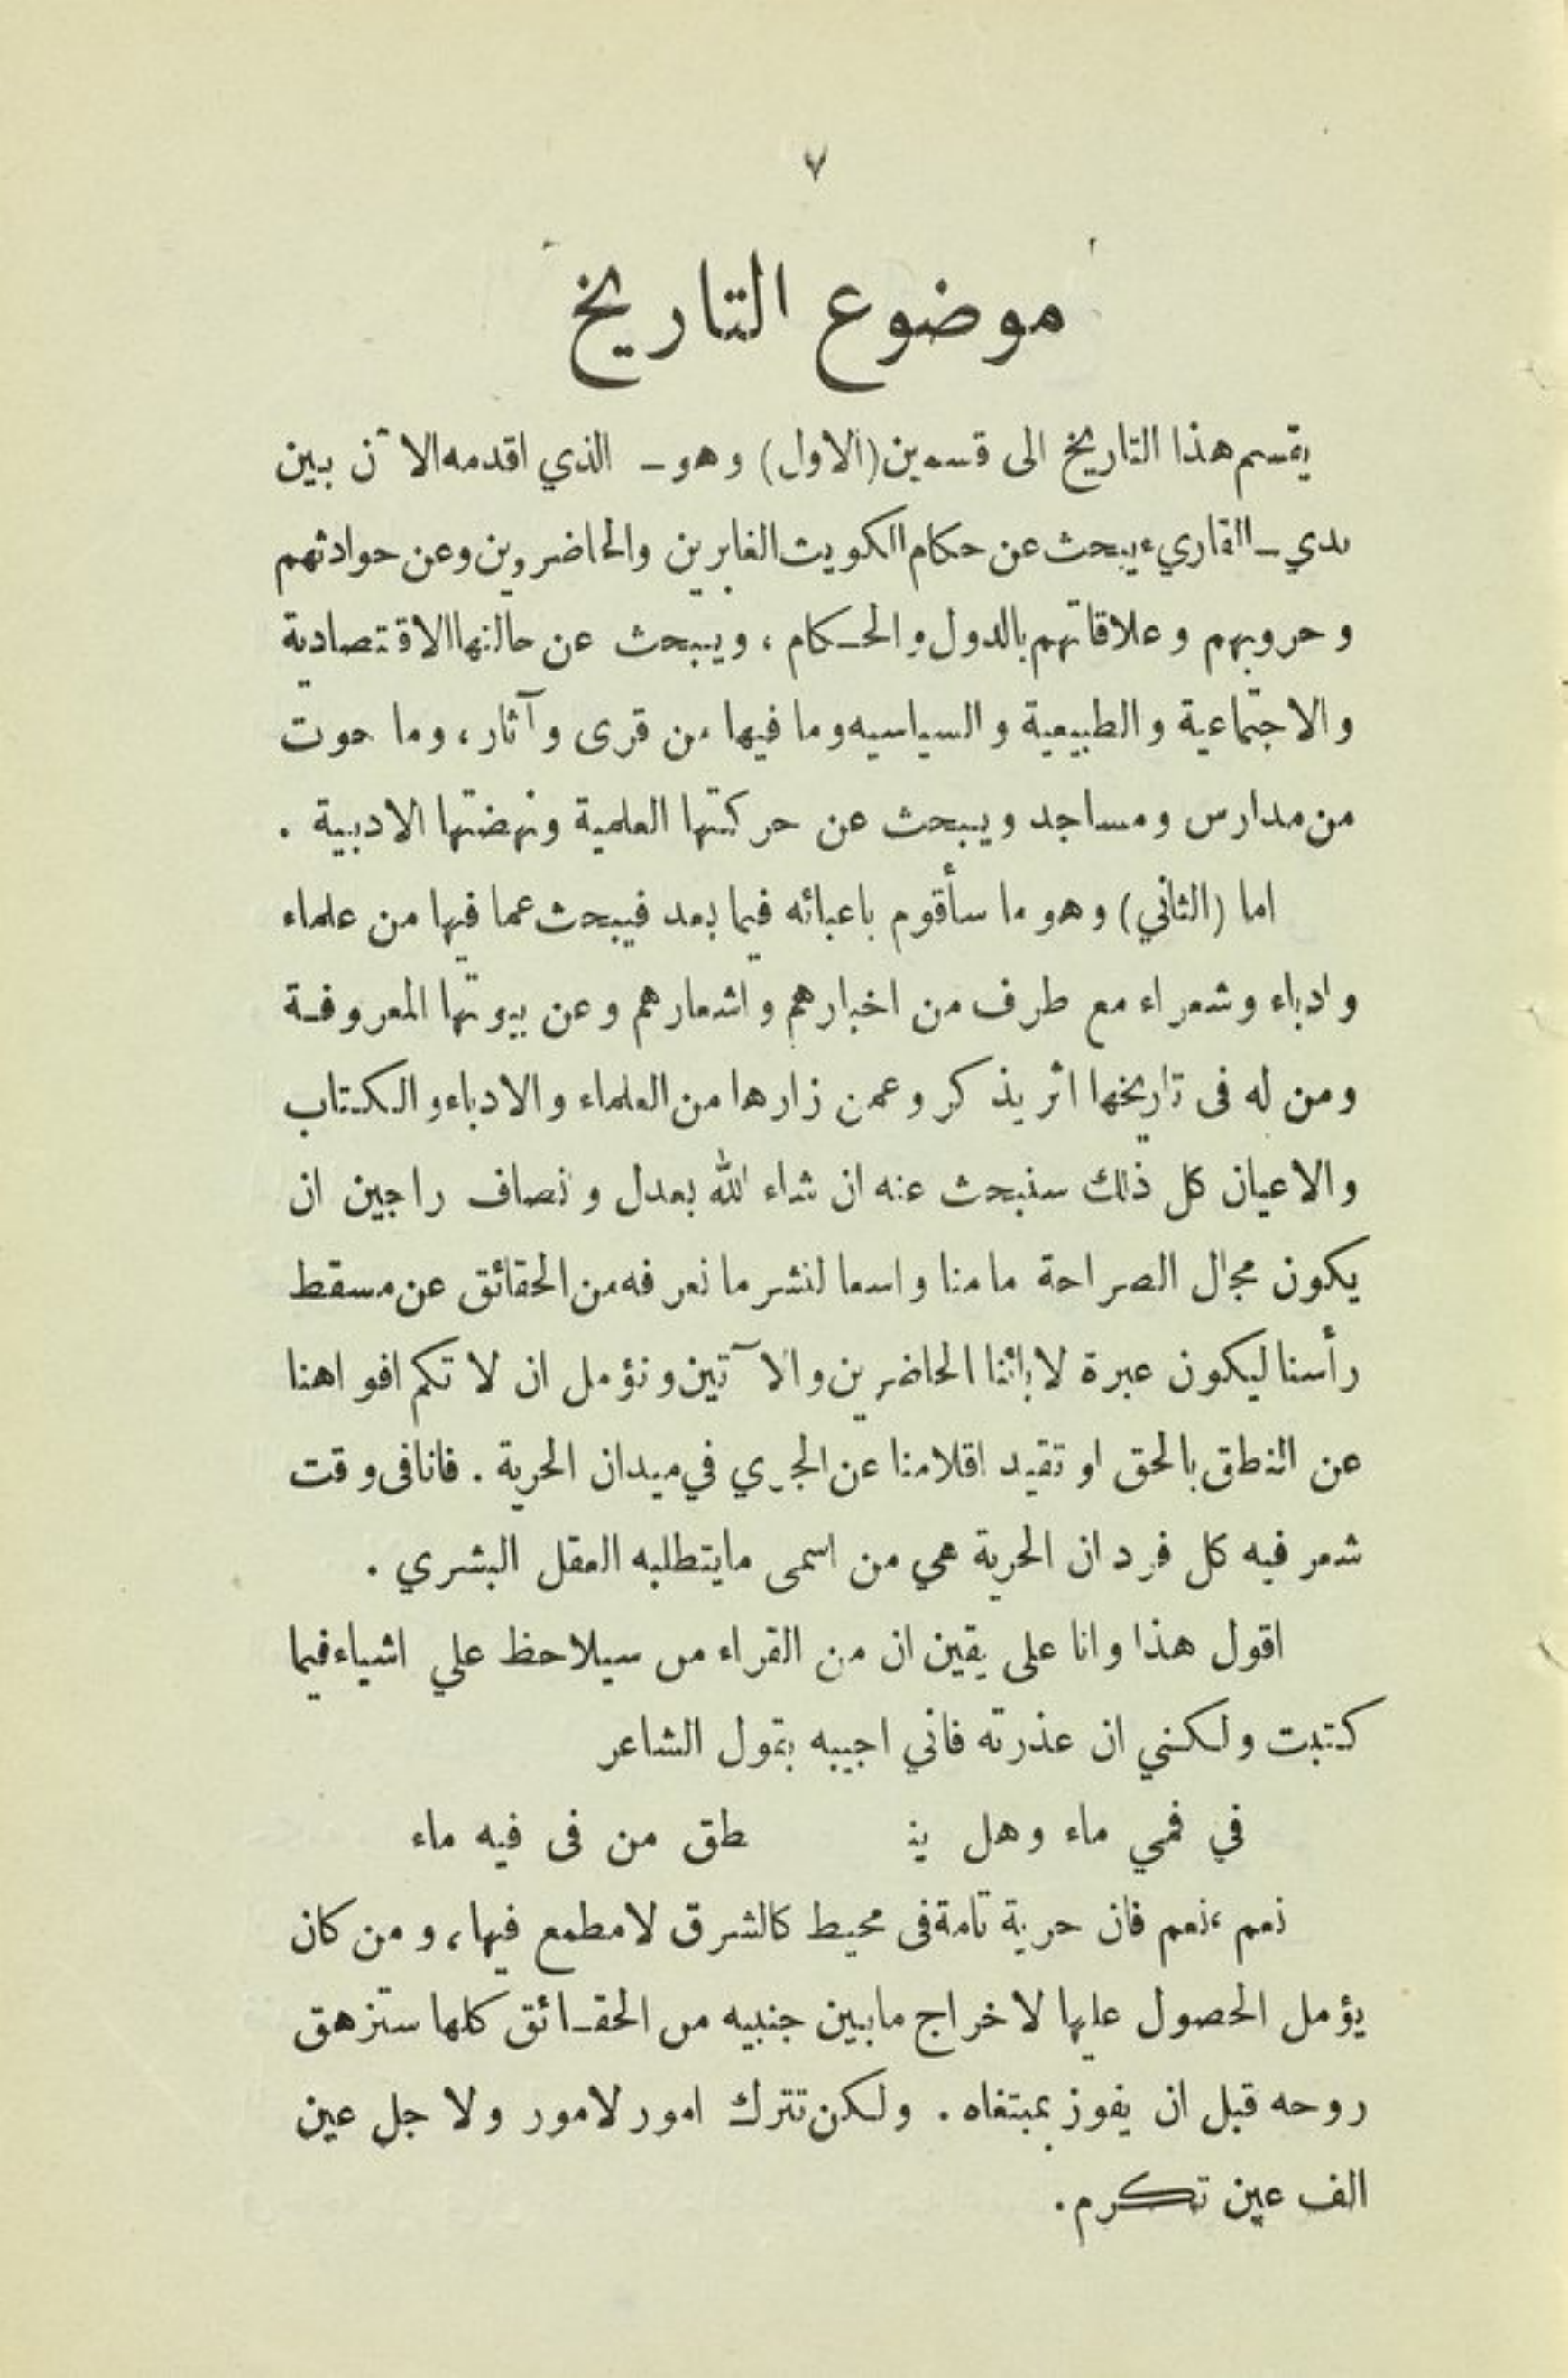 ٧
موضوع التاريخ
يقسم هذا التاريخ الى قسمين (الاول) وهو ـ الذي اقدمه الآن بين
يدي ـ القاريء يبحث عن حكام الكويت الغابرين والحاضروين وعن حوادثهم
وحروبهم وعلاقاتهم بالدول والحكام ، ويبحث عن حالتها الاقتصادية
والاجتماعية والطبيعية والسياسيه وما فيها من قرى وآثار ، وما حوت
من مدارس ومساجد ويبحث عن حركتها العلمية ونهضتها الادبية .
اما (الثاني) وهو ما سأقوم باعبائه فيما بعد فيبحث عما فيها من علماء
وادباء وشعراء مع طرف من اخبارهم واشعارهم وعن بيوتها المعروفة
ومن له فى تاريخها اثر يذكر وعمن زارها من العلماء والادباء والكتاب
والاعيان كل ذلك سنبحث عنه ان شاء الله بعدل وانصاف راجين ان
يكون مجال الصراحة مامنا واسعا لنشر ما نعرفه من الحقائق عن مسقط
رأسنا ليكون عبرة لابائنا الحاضرين والآتين ونؤمل ان لا تكم افواهنا
عن النطق بالحق او تقيد اقلامنا عن الجري في ميدان الحرية . فانا فى وقت
شعر فيه كل فرد ان الحرية هي من اسمى مايتطلبه العقل البشري .
اقول هذا وانا على يقين ان من القراء من سيلاحظ علي اشياء فيما
كتبت ولكنني ان عذرته فاني اجيبه بقول الشاعر
في فمي ماء وهل ينـ ـطق من فى فيه ماء
نعم ،نعم فان حرية تامة فى محيط كالشرق لامطمع فيها ، ومن كان
يؤمل الحصول عليها لاخراج مابين جنبيه من الحقائق كلها ستزهق
روحه قبل ان يفوز بمبتغاه . ولكن تترك امور لامور ولاجل عين
الف عين تكرم .